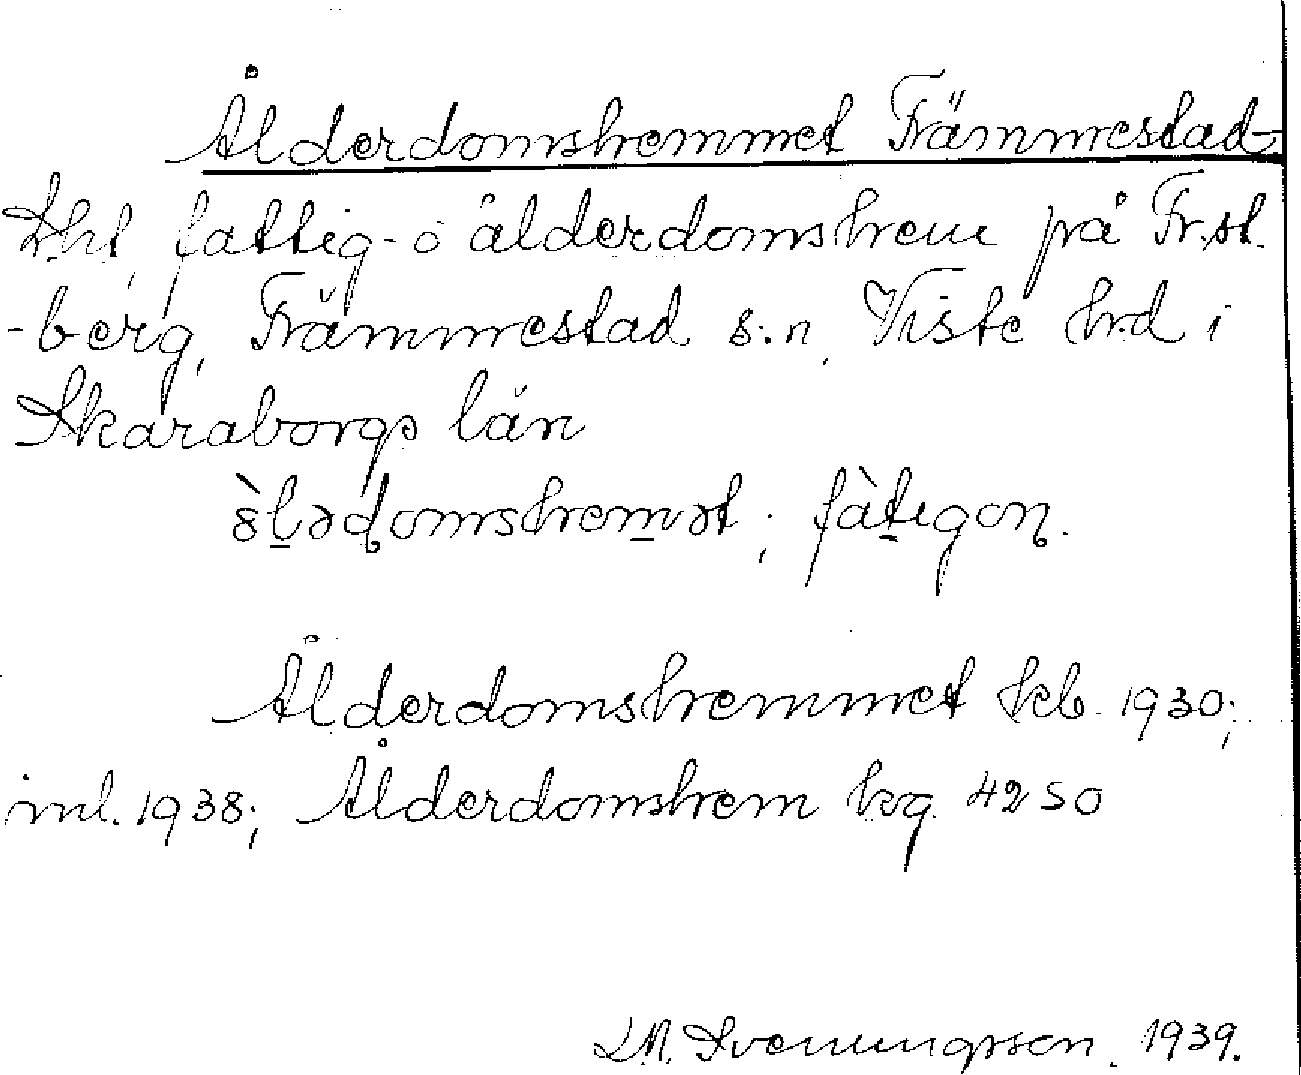 Ålderdomshemmet Främmestad
Lht, fattig- o ålderdomshem på Fr.st.
-berg, Främmestad s:n, Viste hrd i
Skaraborgs län
fàtigon.
Ålderdomshemmet kb. 1930;
ml. 1938; Ålderdomshem kg. 4250
Svenungsson. 1939.